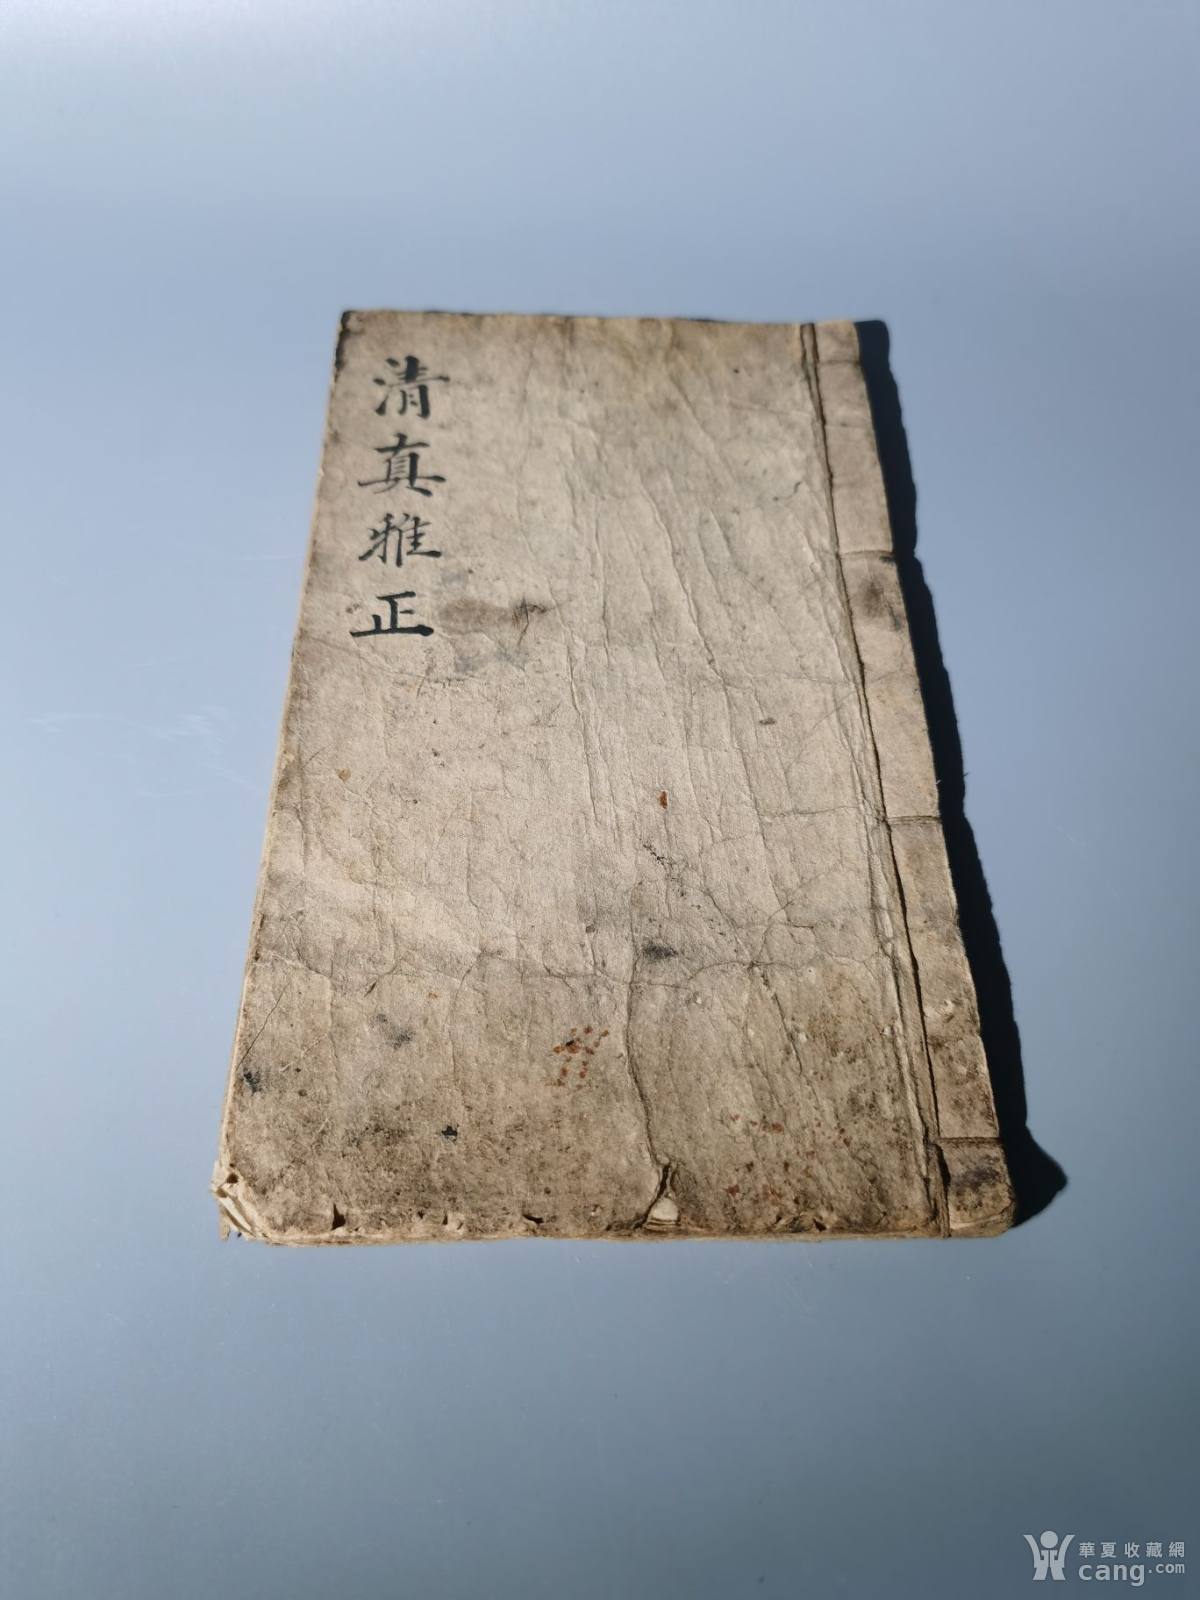 清真雅正
華夏收藏網
cang.com